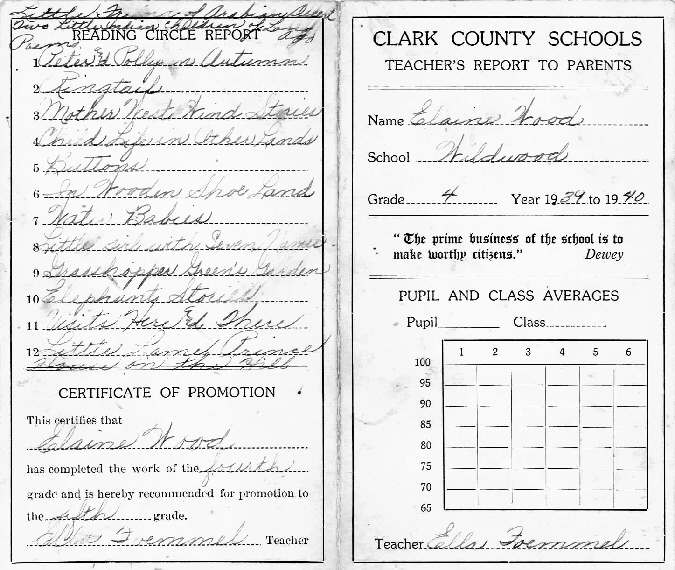 Little Farmer of Arabian Desert
Two Little Indian Children of Long Ago
Poems
READING CIRCLE REPORT
1 Peter & Polly in Autumn
2 Ringtail
3 Mother West Wind Stories
4 Child Life in Other Lands
5 Buttons
6 In Wooden Shoe Land
7 Water Babies
8 Little Girl with Seven Names
9 Grasshopper Green's Garden
10 Elephants Stories
11 Visits Here & There
12 Little Lame Prince
House on the Hill
CERTIFICATE OF PROMOTION
This certifies that
Elaine Wood
has completed the work of the fourth
grade and is hereby recommended for promotion to
the fifth grade.
Ella Foemmel Teacher
CLARK COUNTY SCHOOLS
TEACHER'S REPORT TO PARENTS
Name Elaine Wood
School Wildwood
Grade 4 Year 1939 to 1940
"The prime business of the school is to
make worthy citizens." Dewey
PUPIL AND CLASS AVERAGES
Pupil Class
1 2 3 4 5 6
100
95
90
85
80
75
70
65
Teacher Ella Foemmel